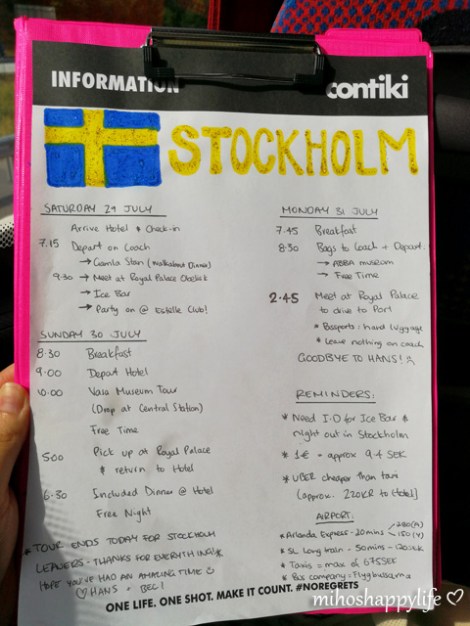 INFORMATION
contiki
STOCKHOLM
SATURDAY 29 JULY
Arrive Hotel & Check-in
7.15 Depart on Coach
→ Gamla Stan (walkabout Dinner)
9.30 → Meet at Royal Palace Obelisk
→ Ice Bar
→ Party on @ Estelle Club!
SUNDAY 30 JULY
8.30 Breakfast
9.00 Depart Hotel
10.00 Vasa Museum Tour
(Drop at Central Station)
Free Time
5.00 Pick up at Royal Palace
& return to Hotel
6.30 Included Dinner @ Hotel
Free Night
* TOUR ENDS TODAY FOR STOCKHOLM
LEAVERS - THANKS FOR EVERYTHING &
HOPE YOU'VE HAD AN AMAZING TIME
HANS + BEC!
MONDAY 31 JULY
7.45 Breakfast
8.30 Bags to Coach + Depart:
→ ABBA museum
→ Free Time
2.45 Meet at Royal Palace
to drive to Port
* Passports + Hand luggage
* Leave nothing on coach
GOODBYE TO HANS!
REMINDERS:
* Need I.D for Ice Bar &
night out in Stockholm
* 1€ = approx 9.4 SEK
* UBER cheaper than taxi
(approx. 220KR to Hotel)
AIRPORT:
* Arlanda Express - 20mins
280(A)
150(Y)
* SL Long train - 50mins -
* Taxis = max of 675SEK
* Bus company = Flygbussarna
ONE LIFE. ONE SHOT. MAKE IT COUNT. #NOREGRETS
mihoshappylife ♡